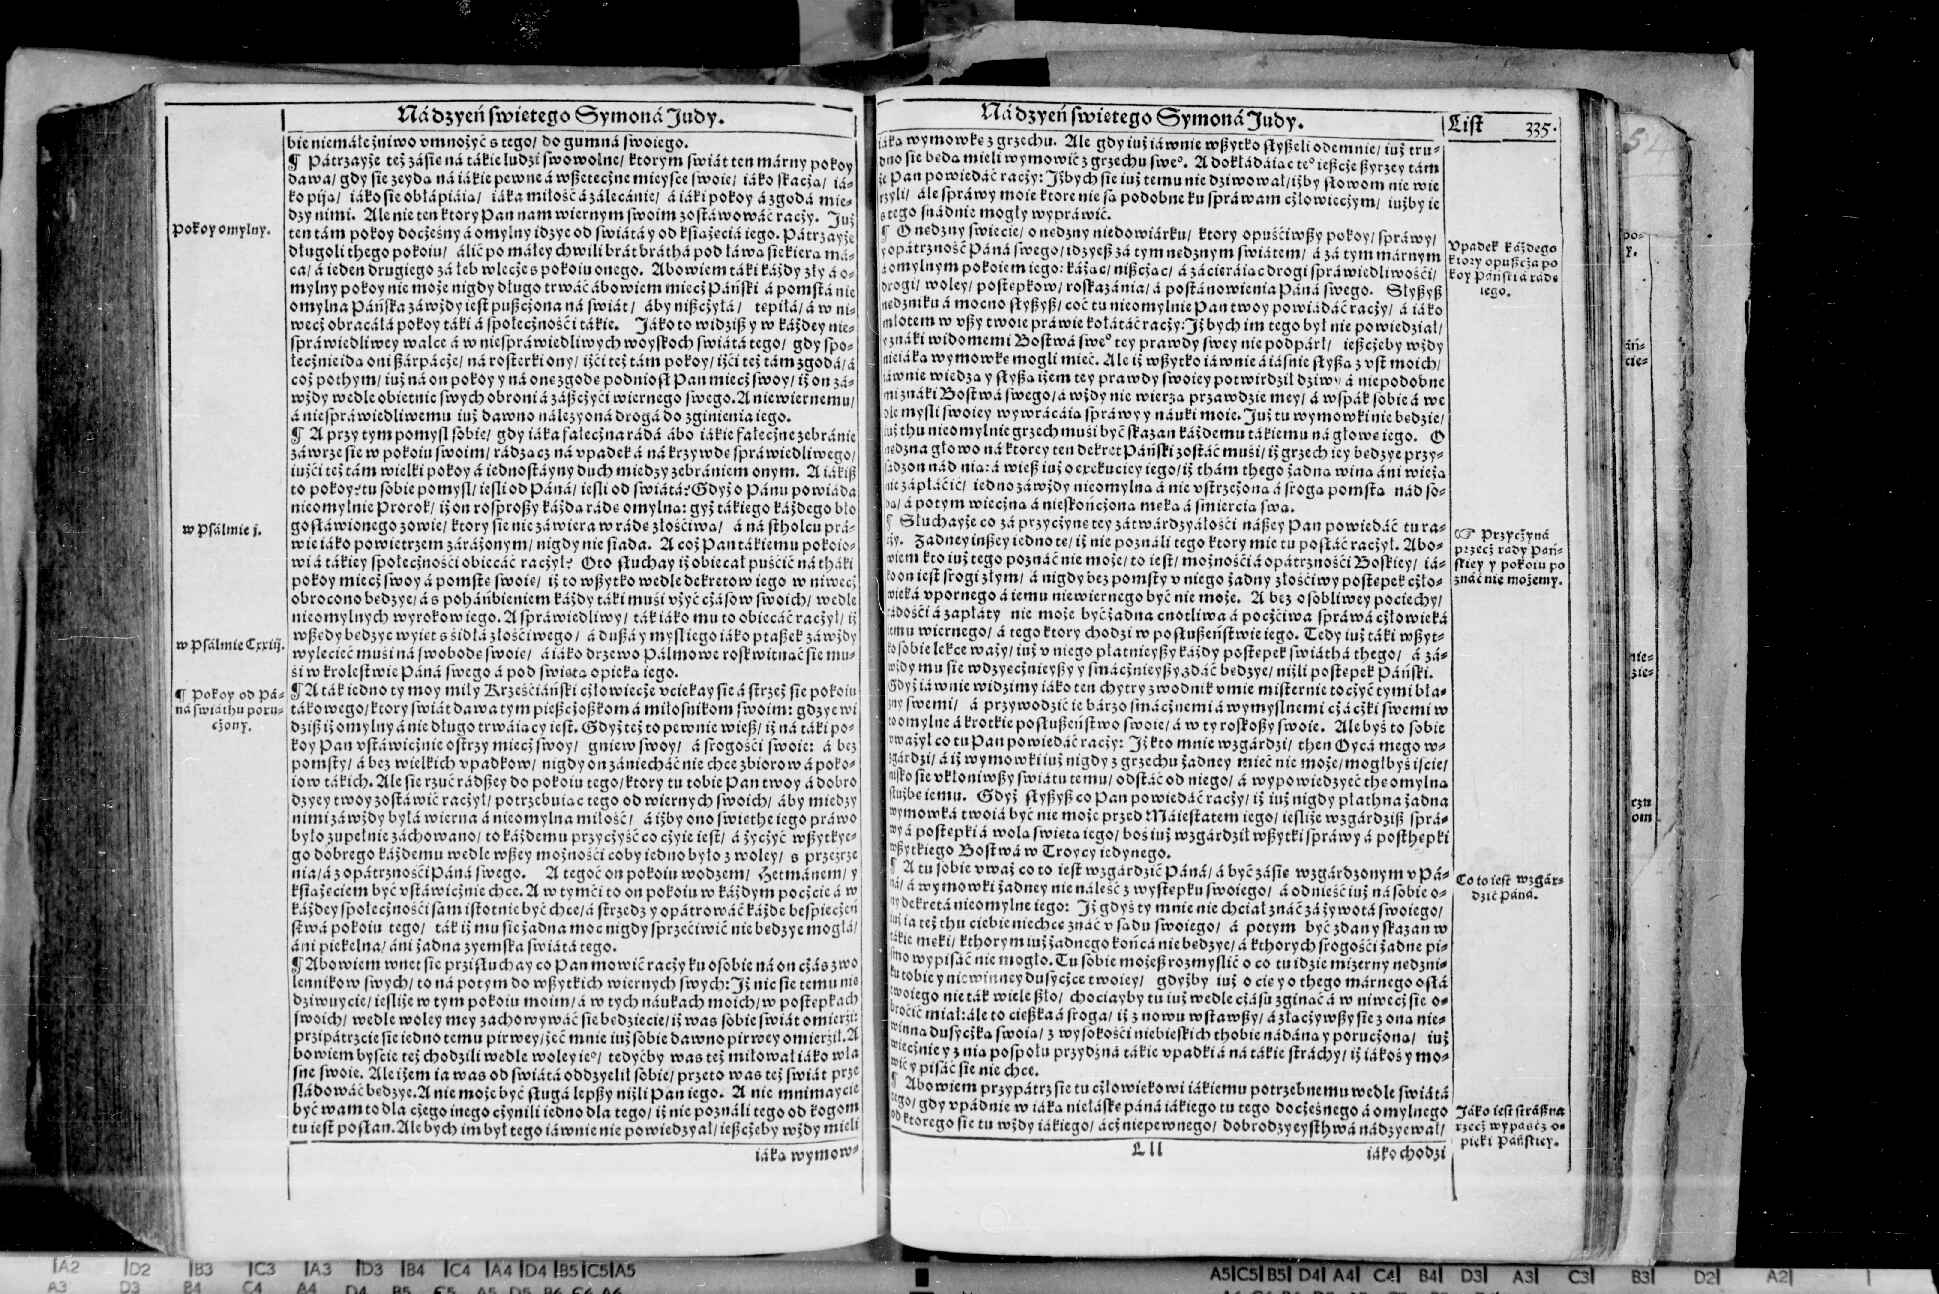 Nádzyeń swietego Symoná Judy.
bie niemáłe żniwo vmnożyć s tego/ do gumná swoiego.
¶ Pátrzayże też zásie ná tákie ludzi swowolne/ ktorym swiát ten márny pokoy
dawa/ gdy sie zeyda ná iákie pewne á wßetecżne mieysce swoie/ iáko skacża/ iá-
ko pija/ iáko sie obłápiáia/ iáka miłość á zálecánie/ á iáki pokoy á zgodá mie-
dzy nimi. Ale nie ten ktory Pan nam wiernym swoim zostáwowáć racży. Już
ten tám pokoy docżesny á omylny idzye od swiátá y od ksiażeciá iego. Pátrzayże
długoli thego pokoiu/ álić po máłey chwili brát bráthá pod łáwa siekiera má-
ca/ á ieden drugiego zá łeb wlecże s pokoiu onego. Abowiem táki káżdy zły á o-
mylny pokoy nie może nigdy długo trwáć ábowiem miecż Páński á pomstá nie
omylna Páńska záwżdy iest pußcżona ná swiát/ áby nißcżyłá/ tepiłá/ á w ni-
wecż obracáłá pokoy táki á społecżnośći tákie. Jáko to widziß y w káżdey nie-
spráwiedliwey walce á w niespráwiedliwych woyskoch swiátá tego/ gdy spo-
łecżnie ida oni ßárpácże/ ná rosterki ony/ iśći też tám pokoy/ iśći też tám zgodá/ á
coż pothym/ iuż ná on pokoy y ná one zgode podniosł Pan miecż swoy/ iż on zá-
wżdy wedle obietnic swych obroni á záßcżyći wiernego swego. A niewiernemu/
á niespráwiedliwemu iuż dawno náleżyoná drogá do zginienia iego.
¶ A przy tym pomysl sobie/ gdy iáka fałecżna rádá ábo iákie fałecżne zebránie
záwrze sie w pokoiu swoim/ rádzacż ná vpadek á ná krzywde spráwiedliwego/
iużći też tám wielki pokoy á iednostáyny duch miedzy zebrániem onym. A iákiß
to pokoy? tu sobie pomysl/ iesli od Páná/ iesli od swiátá? Gdyż o Pánu powiáda
nieomylnie Prorok/ iż on rosproßy káżda ráde omylna: gyż tákiego káżdego bło
gosłáwionego zowie/ ktory sie nie záwiera w ráde złośćiwa/ á ná stholcu prá-
wie iáko powietrzem zárażonym/ nigdy nie siada. A coż Pan tákiemu pokoio-
wi á tákiey społecżnośći obiecáć racżył? Oto słuchay iż obiecał puśćić ná tháki
pokoy miecż swoy á pomste swoie/ iż to wßytko wedle dekretow iego w niwecż
obrocono bedzye/ á s poháńbieniem káżdy táki muśi vżyć cżásow swoich/ wedle
nieomylnych wyrokow iego. A spráwiedliwy/ ták iáko mu to obiecáć racżył/ iż
wßedy bedzye wyiet s śidłá złośćiwego/ á dußá y mysl iego iáko ptaßek záwżdy
wylecieć muśi ná swobode swoie/ á iáko drzewo Palmowe roskwitnáć sie mu-
śi w krolestwie Páná swego á pod swieta opieka iego.
¶ A ták iedno ty moy miły Krześćiáński cżłowiecże vciekay sie á strzeż sie pokoiu
tákowego/ ktory swiát dawa tym pießcżoßkom á miłosnikom swoim: gdzye wi
dziß iż omylny á nie długo trwáiacy iest. Gdyż też to pewnie wieß/ iż ná táki po-
koy Pan vstáwicżnie ostrzy miecż swoy/ gniew swoy/ á srogośći swoie: á bez
pomsty/ á bez wielkich vpadkow/ nigdy on zániecháć nie chce zbiorow á poko-
iow tákich. Ale sie rzuć rádßey do pokoiu tego/ ktory tu tobie Pan twoy á dobro
dzyey twoy zostáwić racżył/ potrzebuiac tego od wiernych swoich/ áby miedzy
nimi záwżdy byłá wierna á nieomylna miłość/ á iżby ono swiethe iego práwo
było zupełnie záchowano/ to káżdemu przycżyść co cżyie iest/ á życżyć wßytkye-
go dobrego káżdemu wedle wßey możnośći coby iedno było z woley/ s przeźrze
nia/ á z opátrznośći Páná swego. A tegoć on pokoiu wodzem/ Hetmánem/ y
ksiażeciem być vstáwicżnie chce. A w tymći to on pokoiu w káżdym pocżcie á w
káżdey społecżnośći sam istotnie być chce/ á strzedz y opátrowáć káżde bespiecżeń
stwá pokoiu tego/ ták iż mu sie żadna moc nigdy sprzećiwić nie bedzye mogłá/
áni piekelna/ áni żadna zyemska swiátá tego.
¶ Abowiem wnet sie przisłuchay co Pan mowić racży ku osobie ná on cżás zwo
lennikow swych/ to ná potym do wßytkich wiernych swych: Iż nic sie temu nie
dziwuycie/ ieslije w tym pokoiu moim/ á w tych náukach moich/ w postepkach
swoich/ wedle woley mey zachowywáć sie bedziecie/ iż was sobie swiát omierzi:
przipátrzcie sie iedno temu pirwey/ żeć mnie iuż sobie dawno pirwey omierził. A
bowiem byscie też chodzili wedle woley ie°/ tedyćby was też miłował iáko wła
sne swoie. Ale iżem ia was od swiátá oddzyelił sobie/ przeto was też swiát prze
sládowáć bedzye. A nie może być sługá lepßy niżli Pan iego. A nie mnimaycie
być wam to dla cżego inego cżynili iedno dla tego/ iż nie poználi tego od kogom
tu iest posłan. Ale bych im był tego iáwnie nie powiedzyał/ ießcżeby wżdy mieli
iáka wymow-
Pokoy omylny.
w Psálmie j.
w Psálmie Cxxiij.
¶ Pokoy od Pá-
ná swiáthu poru-
cżony.
Nádzyeń swietego Symoná Judy.
List 335.
iáka wymowke z grzechu. Ale gdy iuż iáwnie wßytko słyßeli odemnie/ iuż tru-
dno sie beda mieli wymowić z grzechu swe°. A dokłádáiac te° ießcże ßyrzey tám
że Pan powiedáć racży: Iżbych sie iuż temu nie dziwował/ iżby słowom nie wie
rzyli/ ále spráwy moie ktore nie sa podobne ku spráwam cżłowiecżym/ iużby ie
s tego snádnie mogły wypráwić.
¶ O nedzny swiecie/ o nedzny niedowiárku/ ktory opuśćiwßy pokoy/ spráwy/
y opátrzność Páná swego/ idzyeß zá tym nedznym swiátem/ á zá tym márnym
á omylnym pokoiem iego: káżac/ nißcżac/ á zácieráiac drogi spráwiedliwośći/
drogi/ woley/ postepkow/ roskazánia/ á postánowienia Páná swego. Słyßyß
nedzniku á mocno słyßyß/ coć tu nieomylnie Pan twoy powiádáć racży/ á iáko
młotem w vßy twoie práwie kołátáć racży: Iżbych im tego był nie powiedział/
y znáki widomemi Bostwá swe° tey prawdy swey nie podpárł/ ießcżeby wżdy
nieiáka wymowke mogli mieć. Ale iż wßytko iáwnie á iásnie słyßa z vst moich/
iáwnie wiedza y słyßa iżem tey prawdy swoiey potwirdził dziwy á niepodobne
mi znáki Bostwá swego/ á wżdy nie wierza przawdzie mey/ á wspák sobie á we
dle mysli swoiey wywrácáia spráwy y náuki moie. Już tu wymowki nie bedzie/
iuż thu nieomylnie grzech muśi być skazan káżdemu tákiemu ná głowe iego. O
nedzna głowo ná ktorey ten dekret Páński zostáć muśi/ iż grzech iey bedzye przy-
sadzon nád nia: á wieß iuż o exekuciey iego/ iż thám thego żadna winá áni wieża
nie zápłáćić/ iedno záwżdy nieomylna á nie vstrzeżona á sroga pomstá nád so-
ba/ á potym wiecżna á nieskońcżona meka á śmiercia swa.
¶ Słuchayże co zá przycżyne tey zátwárdzyáłośći náßey Pan powiedáć tu ra-
cży. Żadney inßey iedno te/ iż nie poználi tego ktory mie tu posłáć racżył. Abo-
wiem kto iuż tego poznáć nie może/ to iest/ możnośći á opátrznośći Boskiey/ iá-
ko on iest srogi złym/ á nigdy bez pomsty v niego żadny złośćiwy postepek cżło-
wieká vpornego á iemu niewiernego być nie może. A bez osobliwey pociechy/
rádośći á zapłáty nie może być żadna cnotliwa á pocżćiwa spráwá cżłowieká
iemu wiernego/ á tego ktory chodzi w posłußeństwie iego. Tedy iuż táki wßyt-
ko sobie lekce waży/ iuż v niego płatnieyßy káżdy postepek swiáthá thego/ á zá-
wżdy mu sie wdzyecżnieyßy y smácżnieyßy zdáć bedzye/ niżli postepek Páński.
Gdyż iáwnie widzimy iáko ten chytry zwodnik vmie misternie tocżyć tymi blá-
zny swemi/ á przywodzić ie bárzo smácżnemi á wymyslnemi cżácżki swemi w
to omylne á krotkie posłußeństwo swoie/ á w ty roskoßy swoie. Ale byś to sobie
vważył co tu Pan powiedáć racży: Iż kto mnie wzgárdzi/ then Oycá mego w-
zgárdzi/ á iż wymowki iuż nigdy z grzechu żadney mieć nie może/ mogłbyś iście/
nisko sie vkłoniwßy swiátu temu/ odstáć od niego/ á wypowiedzyeć the omylna
służbe iemu. Gdyż słyßyß co Pan powiedáć racży/ iż iuż nigdy płathna żadna
wymowká twoiá być nie może przed Máiestatem iego/ ieslije wzgárdziß sprá-
wy á postepki á wola swieta iego/ boś iuż wzgárdził wßytki spráwy á posthepki
wßytkiego Bostwá w Troycy iedynego.
¶ A tu sobie vważ co to iest wzgárdzić Páná/ á być zásie wzgárdzonym v Pá-
ná/ á wymowki żadney nie náleść z wystepku swoiego/ á odnieść iuż ná sobie o-
ny dekretá nieomylne iego: Iż gdyś ty mnie nie chciał znáć zá żywotá swoiego/
iuż ia też thu ciebie niechce znáć v sadu swoiego/ á potym być zdany skazan w
tákie meki/ kthorym iuż żadnego końcá nie bedzye/ á kthorych srogośći żadne pi-
smo wypisáć nie mogło. Tu sobie możeß rozmyslić o co tu idzie mizerny nedzni-
ku tobie y niewinney dusycżce twoiey/ gdyżby iuż o cie y o thego márnego ostá
twoiego nie ták wiele ßło/ chociayby tu iuż wedle cżásu zgináć á w niwecż sie o-
broćić miał: ále to cießka á sroga/ iż z nowu wstawßy/ á złacżywßy sie z ona nie-
winna dusycżka swoia/ z wysokośći niebieskich thobie nádána y porucżona/ iuż
wiecżnie y z nia pospołu przydzná tákie vpadki á ná tákie stráchy/ iż iákoś y mo-
wić y pisáć sie nie chce.
¶ Abowiem przypátrz sie tu cżłowiekowi iákiemu potrzebnemu wedle swiátá
tego/ gdy vpádnie w iáka niełáske páná iákiego tu tego docżesnego á omylnego
od ktorego sie tu wżdy iákiego/ ácż niepewnego/ dobrodzyeysthwá nádzyewał/
L ll
iáko chodzi
Vpadek káżdego
ktory opußcża po
koy Páński á ráde
iego.
☞ Przycżyná
przecż rády Páń-
skiey y pokoiu po
znáć nie możemy.
Co to iest wzgár-
dzić Páná.
Jáko iest stráßna
rzecż wypaść z o-
pieki Páńskiey.